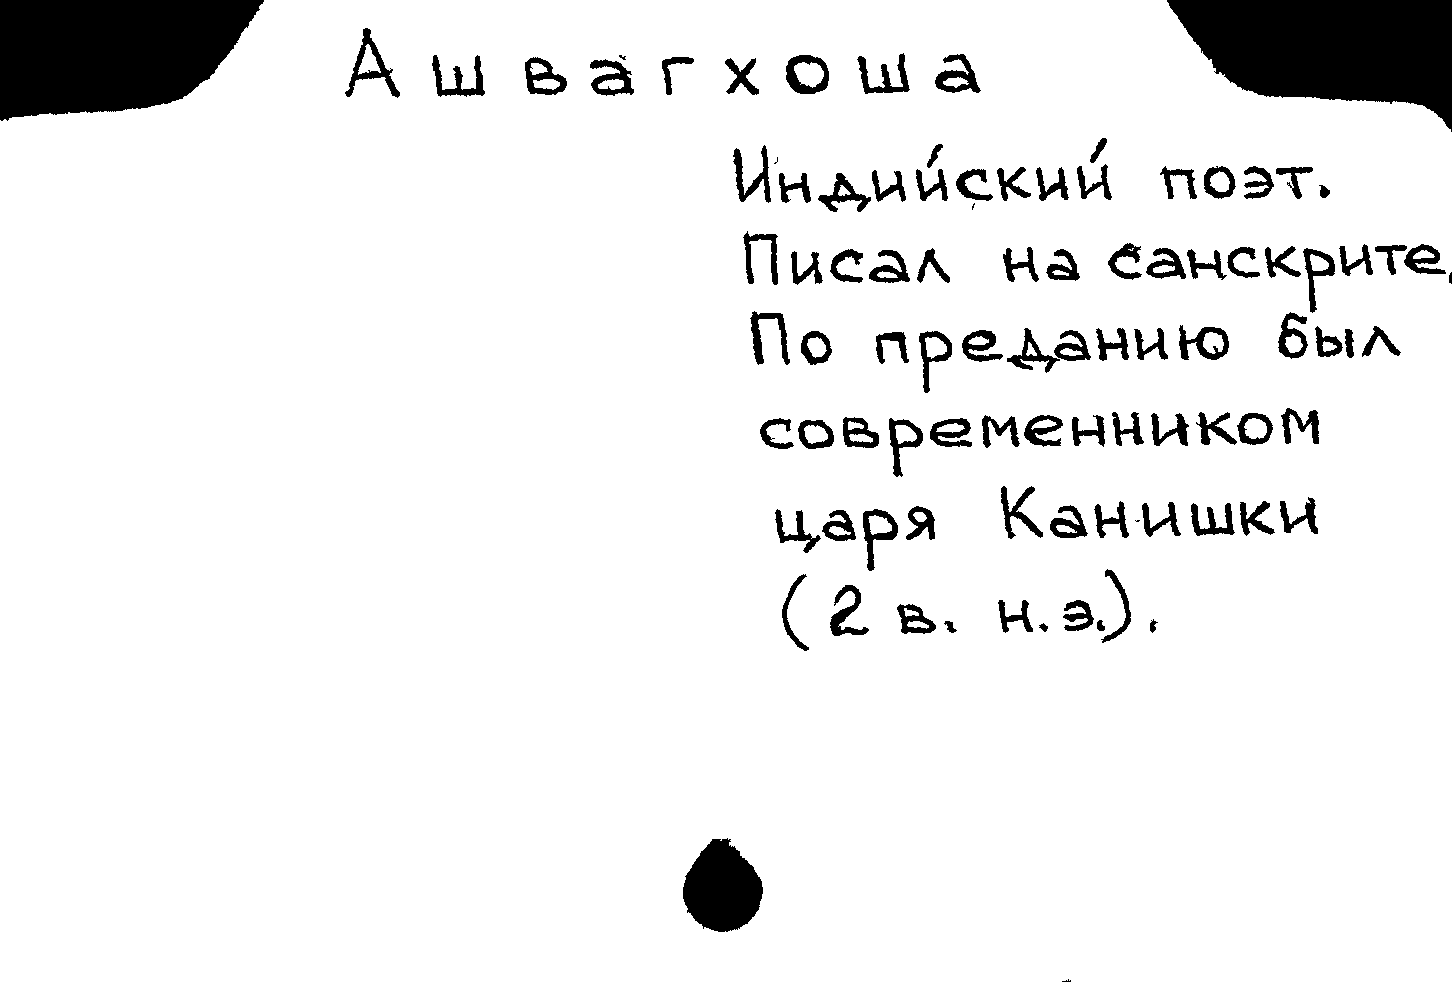 Ашвагхоша
Индийский поэт.
Писал на санскрите.
По преданию был
современником
царя Канишки
(2 в. н.э.).